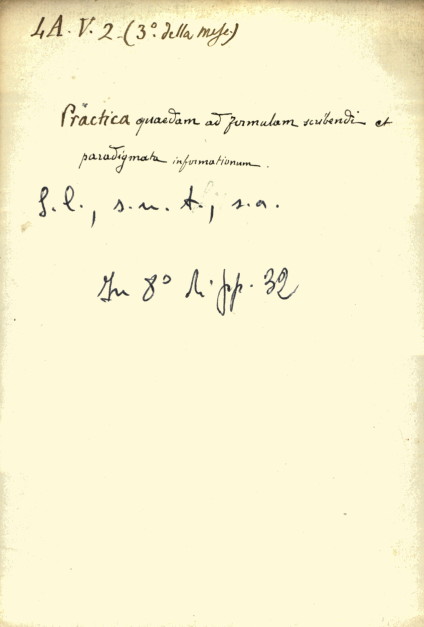 4A. V. 2 (3º. della mise.)
Practica quaedam ad formulam scribendi et
paradigmata informationum.
S. l., s. n. t., s. a.
In 8º di pp. 32